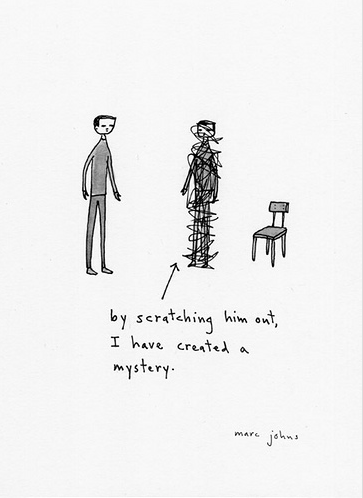 by scratching him out,
I have created a
mystery.
marc johns